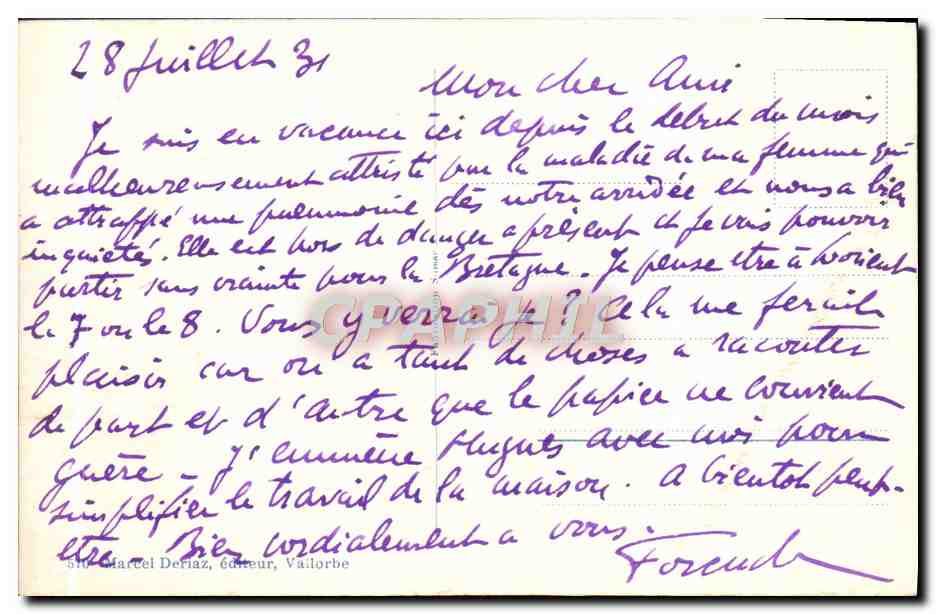 28 Juillet 31
Mon cher Ami
Je suis en vacance ici depuis le debut du mois
malheureusement attristé par la maladie de ma femme qui
a attrappé une pneumonie dès notre arrivée et nous a bien
inquiétés. Elle est hors de danger a présent et je vais pouvoir
partir sans crainte pour la Bretagne. Je pense etre à Lorient
le 7 ou le 8. Vous y verrai je ? Cela me ferait
plaisir car on a tant de choses a raconter
de part et d'autre que le papier ne convient
guère - J'emmène Hugues avec moi pour
simplifier le travail de la maison. A bientot peut-
etre - Bien cordialement a vous.
510 Marcel Deriaz, éditeur, Vallorbe
CPAPHIL